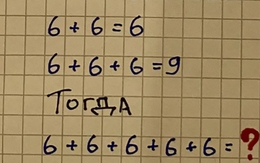 6 + 6 = 6
6 + 6 + 6 = 9
Тогда
6 + 6 + 6 + 6 + 6 = ?